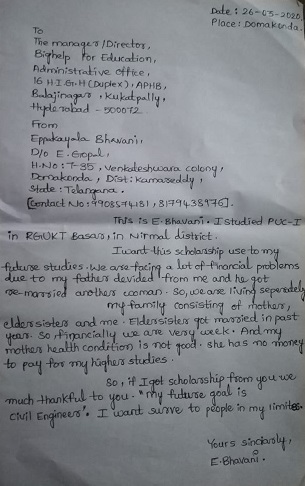 Date: 26-05-2020.
Place: Domakonda.
To
The manager/Director,
Bighelp For Education,
Administrative office,
16 H.I.G.H (Duplex), APHB,
Balajinagar, Kukatpally,
Hyderabad - 500072.
From
Eppakayala Bhavani,
D/o E. Gopal,
H.No: 7-95, Venkateshwara colony,
Domakonda, Dist: Kamareddy,
State: Telangana.
[Contact No: 9908574181, 8179438976].
This is E. Bhavani. I studied PUC-I
in RGUKT Basar, in Nirmal district.
I want this scholarship use to my
future studies. We are facing a lot of financial problems
due to my father devided from me and he got
re-married another woman. So, we are living seperately
my family consisting of mother,
eldersister and me. Eldersister got married in past
year. So financially we are very week. And my
mother health condition is not good. she has no money
to pay for my higher studies.
So, if I got scholarship from you we
much thankful to you. "my future goal is
Civil Engineer". I want surve to people in my limites.
Yours sincarly,
E. Bhavani.